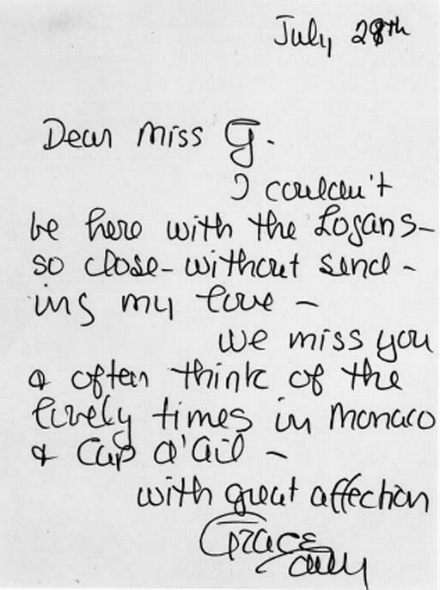 July 28th
Dear Miss G.
I couldn't
be here with the Logans-
so close - without send-
ing my love -
we miss you
& often think of the
lively times in Monaco
& Cap d'Ail -
with great affection
Grace